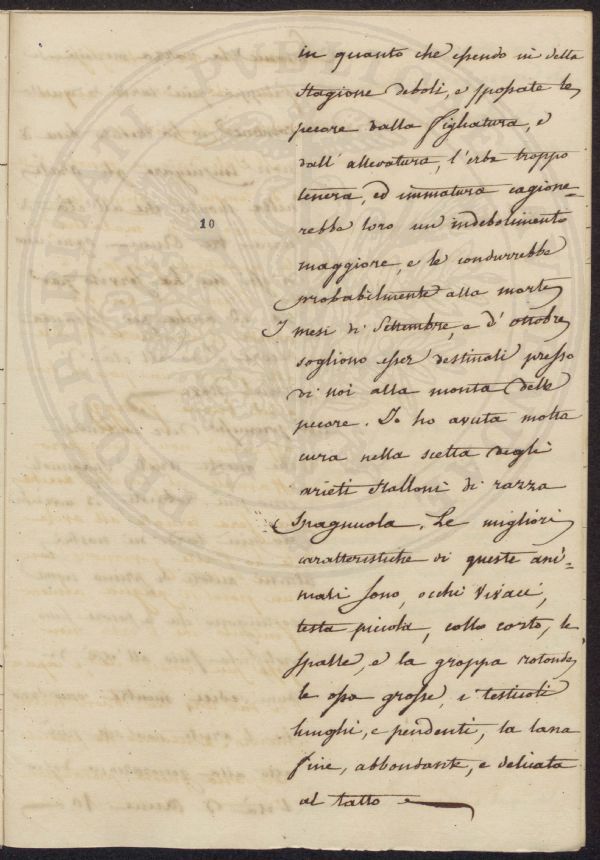 in quanto che essendo in detta
Stagione deboli, e spossate le
pecore dalla figliatura, e
dall' allevatura, l'erba troppo
tenera, ed immatura cagione=
rebbe loro un indebolimento
maggiore, e le condurrebbe
probabilmente alla morte
10
I mesi di Settembre, e d' ottobre
sogliono esser destinati presso
di noi alla monta delle
pecore. Io ho avuta molta
cura nella scelta degli
arieti stalloni di razza
Spagnuola. Le migliori
caratteristiche di queste ani=
mali sono, occhi vivaci,
testa piccola, collo corto, le
spalle, e la groppa rotonde,
le ossa grosse, i testicoli
lunghi, e pendenti, la lana
fine, abbondante, e delicata
al tatto